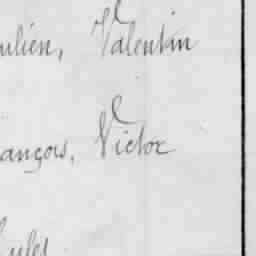 ulien, Valentin
ançois, Victor
ules